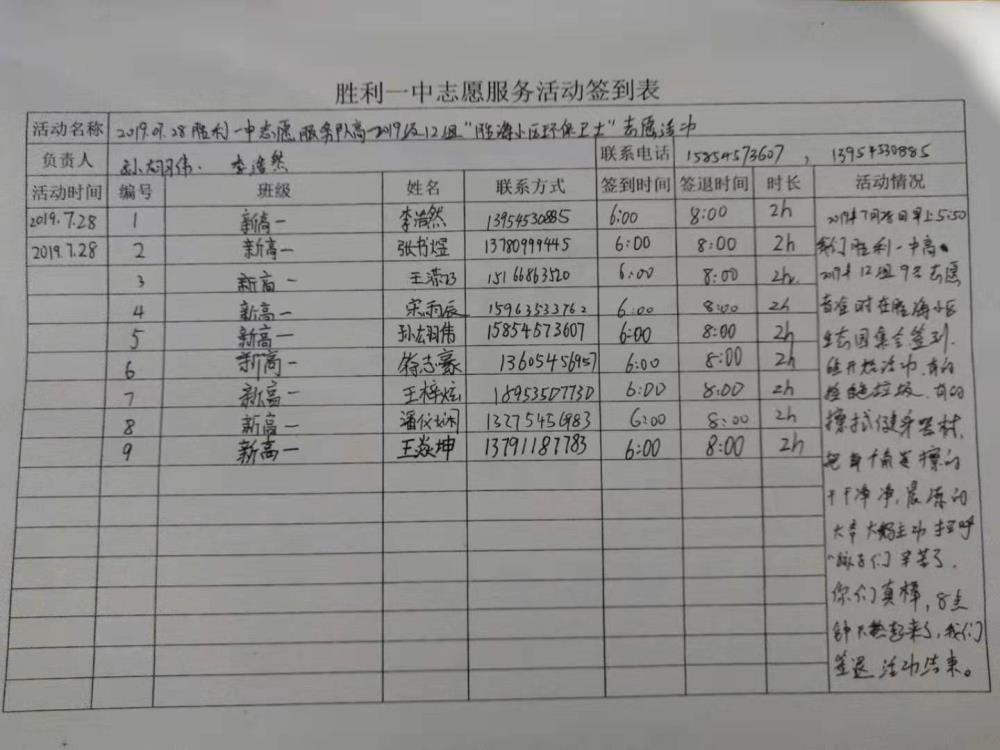 胜利一中志愿服务活动签到表
活动名称 2019.07.28胜利一中志愿服务队高一2019级12组"胜海小区环保卫士"志愿活动
负责人 孙翊伟. 李浩然 联系电话 15854573607, 13954530885
活动时间 编号 班级 姓名 联系方式 签到时间 签退时间 时长 活动情况
2019.7.28 1 新高一 李浩然 13954530885 6:00 8:00 2h 2019年7月28日早上5:50
2019.7.28 2 新高一 张书煜 13780999445 6:00 8:00 2h 我们胜利一中高一
3 新高一 15166863520 6:00 8:00 2h 2019年12组9名志愿
4 新高一 宋雨辰 15963533762 6:00 8:00 2h 者准时在胜海小区
5 新高一 孙翊伟 15854573607 6:00 8:00 2h 生态园集合签到.
6 新高一 徐志豪 13605456957 6:00 8:00 2h 准开始活动.有的
7 新高一 王梓炫 18953507730 6:00 8:00 2h 捡垃圾.有的
8 新高一 潘仪娴 13275456983 6:00 8:00 2h 擦拭健身器材,
9 新高一 王焱坤 13791187783 6:00 8:00 2h 把擦的
干干净净,晨练的
大爷大妈主动打招呼
"孩子们辛苦了.
你们真棒,8点
钟天热起来了,我们
签退活动结束。